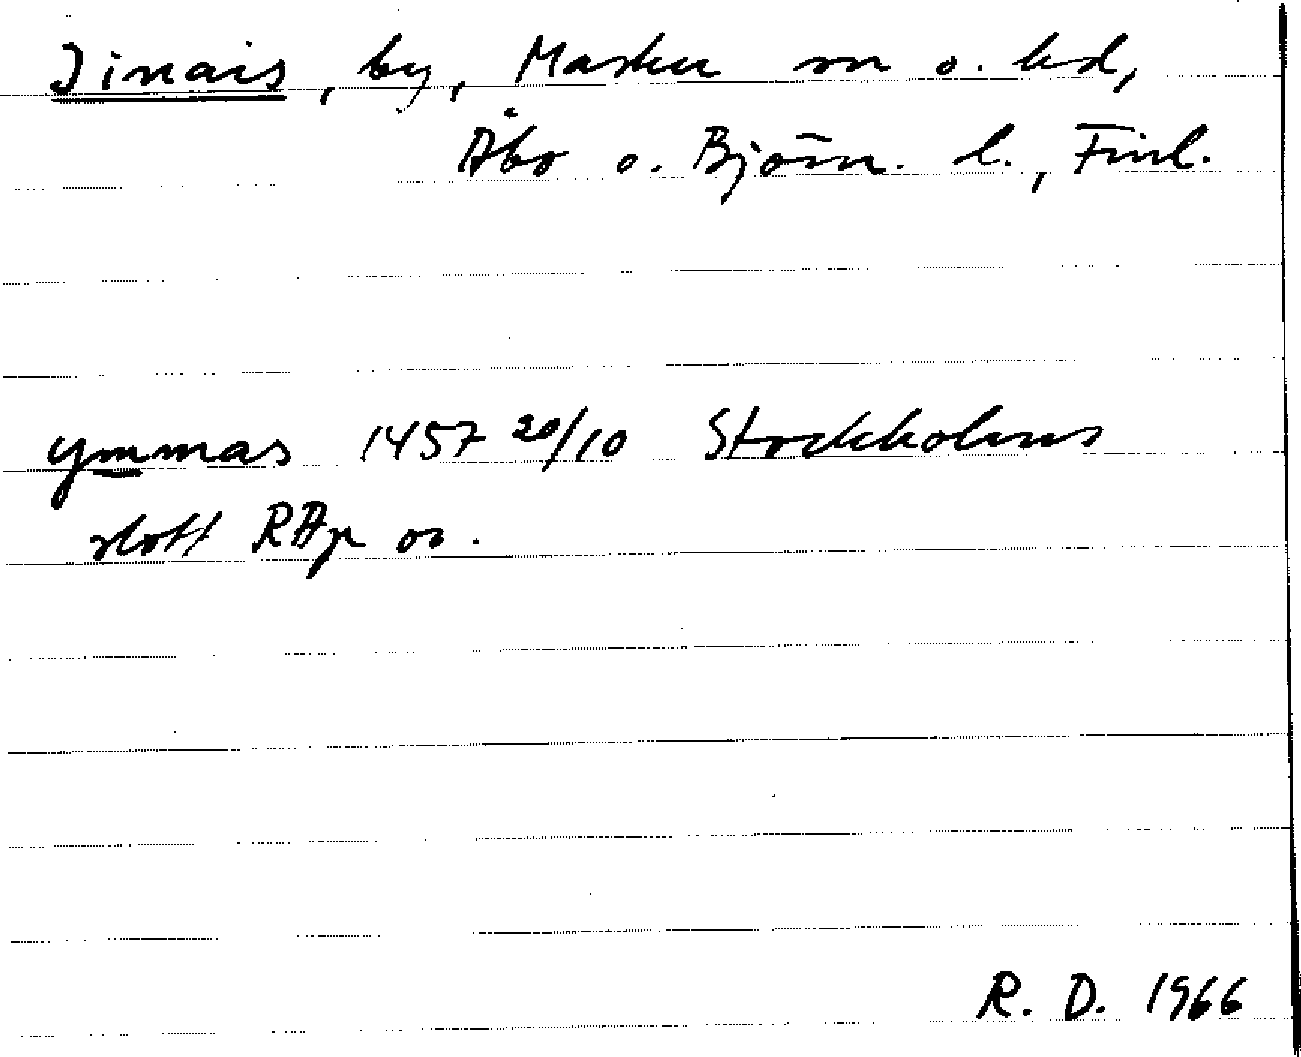 Iinais, by, Masku sn o. hd,
Åbo o. Björn. l., Finl.
ymmas 1457 20/10 Stockholms
slott RAp or.
R. D. 1966